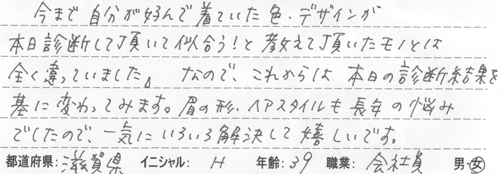 今まで自分が好んで着ていた色・デザインが
本日診断して頂いて似合う！と教えて頂いたモノとは
全く違っていました。なので、これからは本日の診断結果を
基に変わってみます。眉の形、ヘアスタイルも長年の悩み
でしたので、一気にいろいろ解決して嬉しいです。
都道府県：滋賀県 イニシャル：H 年齢：39 職業：会社員 男・女